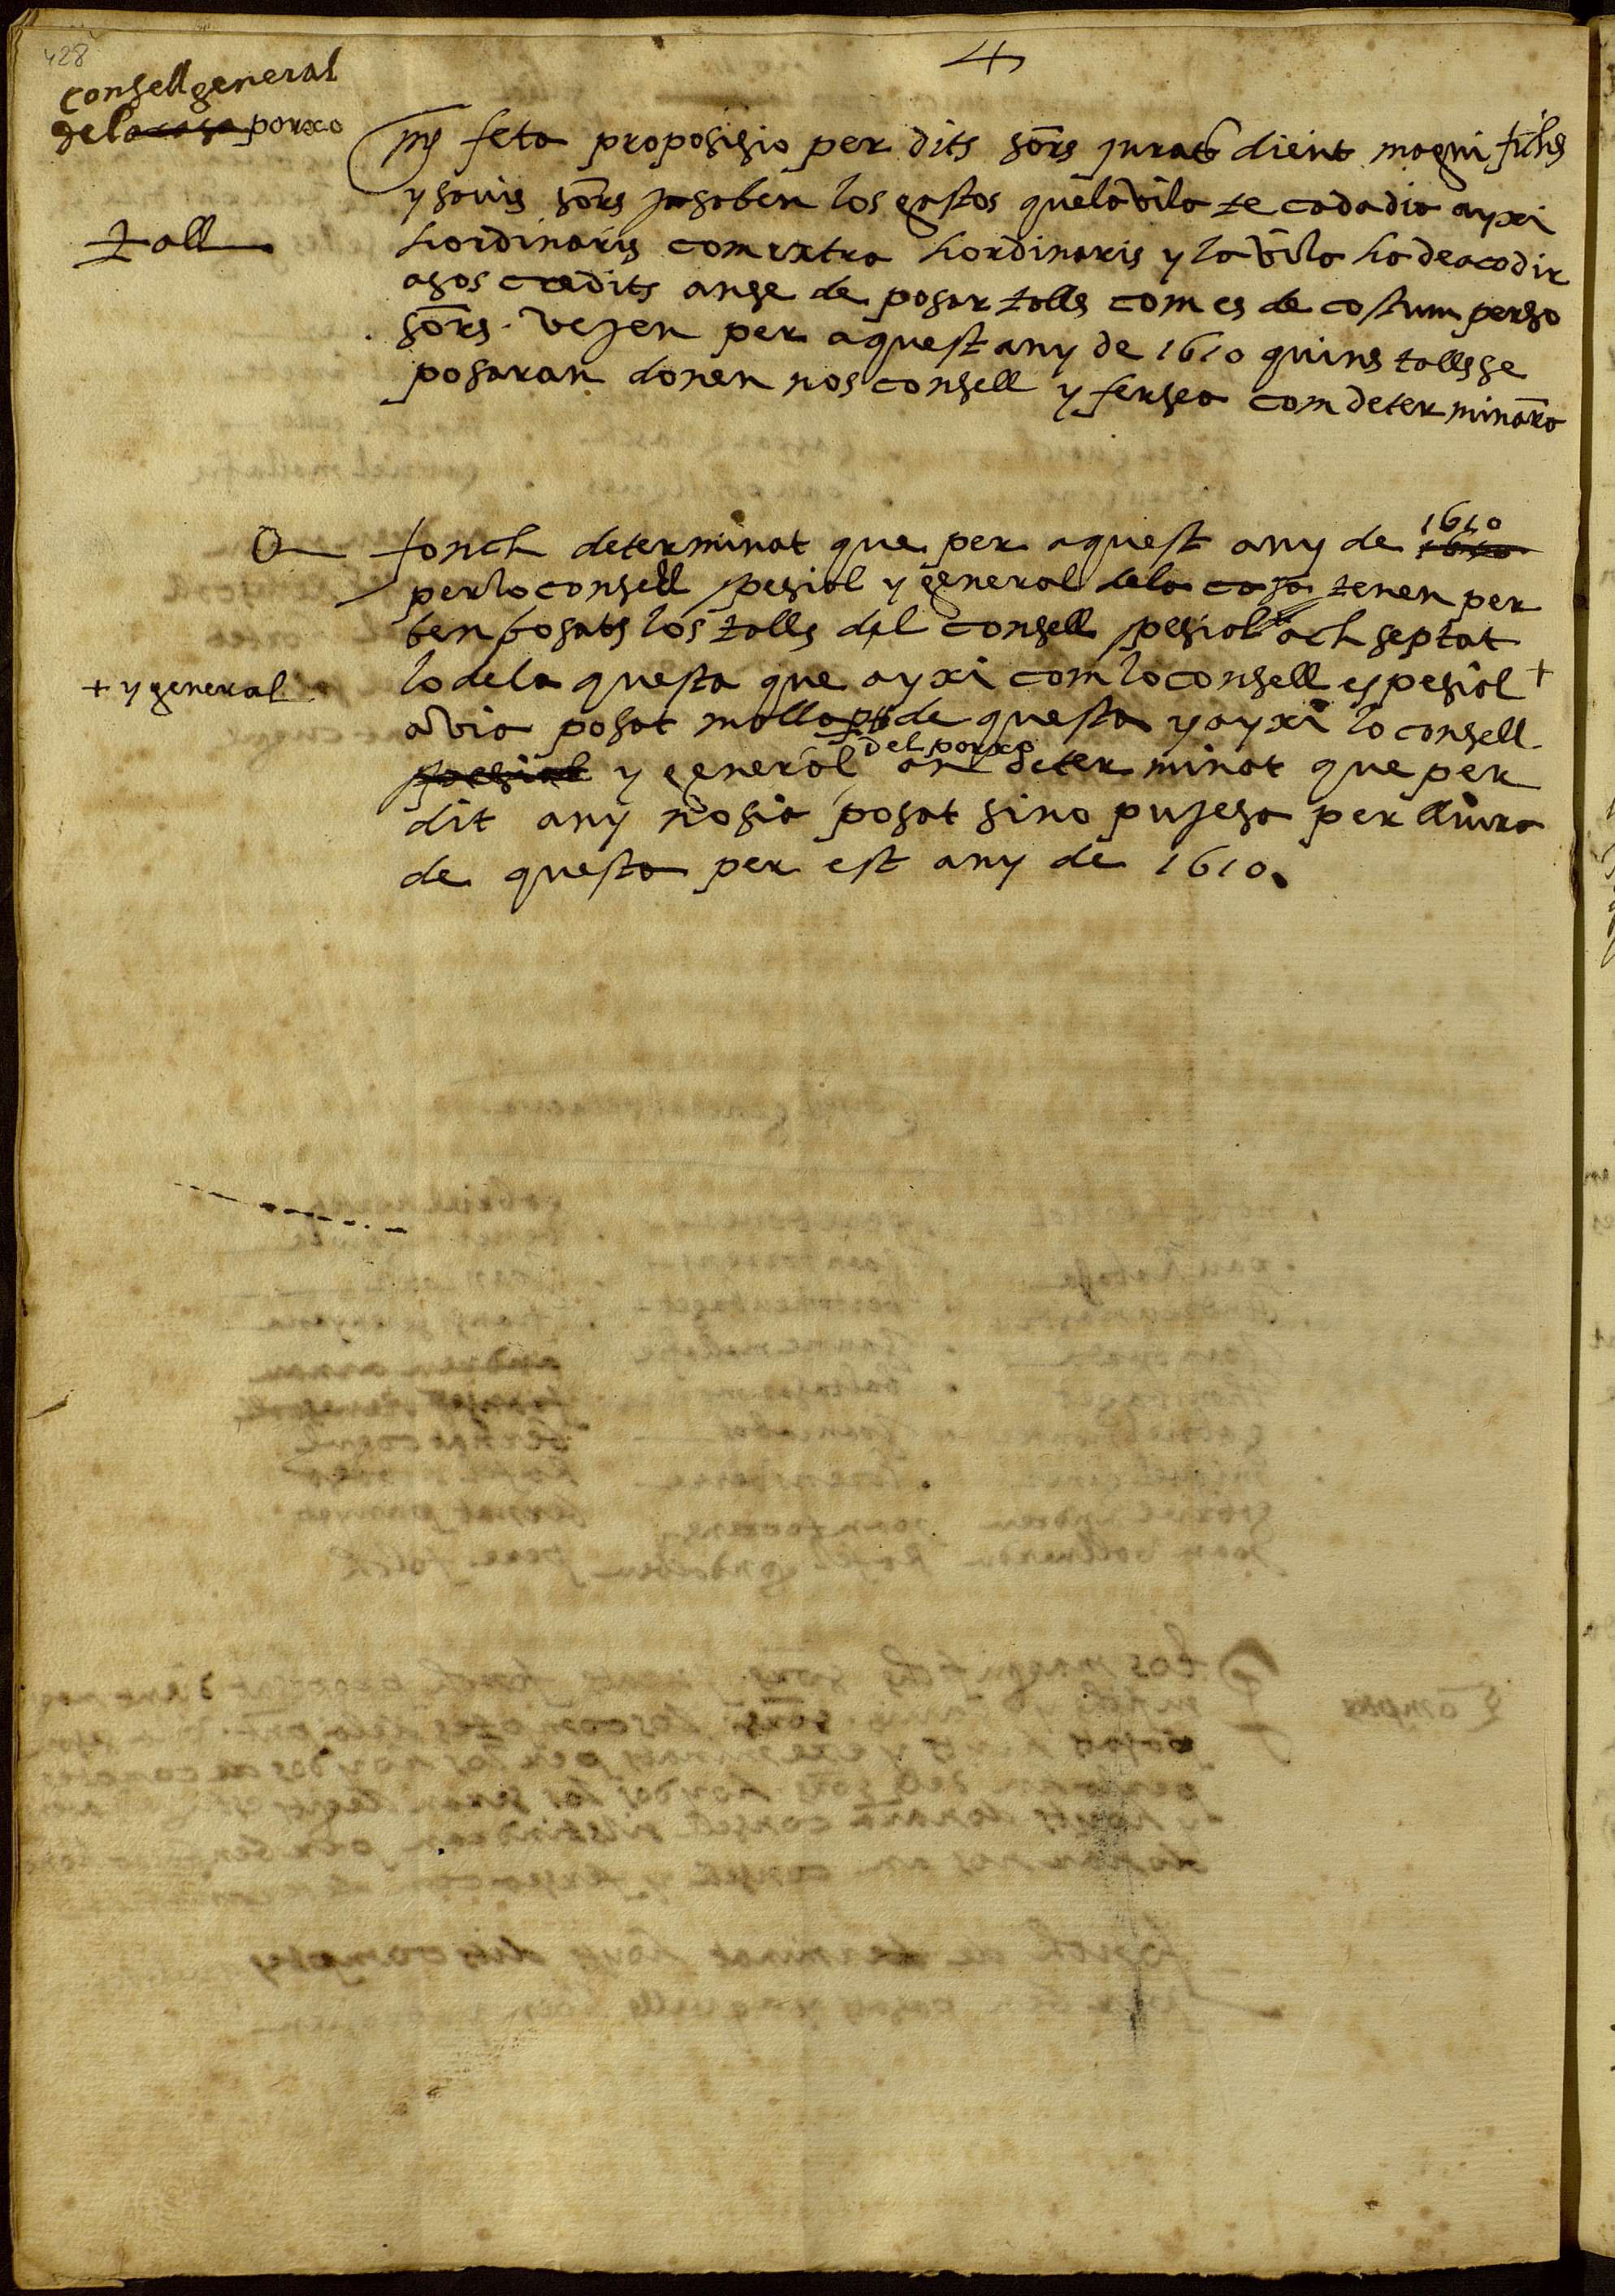 428
4
consell general
de la casa porxo
my feta proposisio per dits sors jurats dient magnifichs
y savis sors ja saben los gastos que la vila te cada dia ayxi
tall
hordinaris com extra hordinaris y la vila ha de acodir
a sos credits an se de posar talls com es de costum per so
sors vejen per aquest any de 1610 quins talls se
posaran donen nos consell y fer sea com determinara
1610
fonch determinat que per aquest any de
per lo consell spesial y general de la casa tenen per
ben posats los talls del consell spesial ach septat
+ y general
lo de la questa que ayxi com lo consell espesial +
avia posat malla de questa y ayxi lo consell
del porxo
spesial y general an determinat que per
dit any no sia posat sino pujesa per lliura
de questa per est any de 1610.